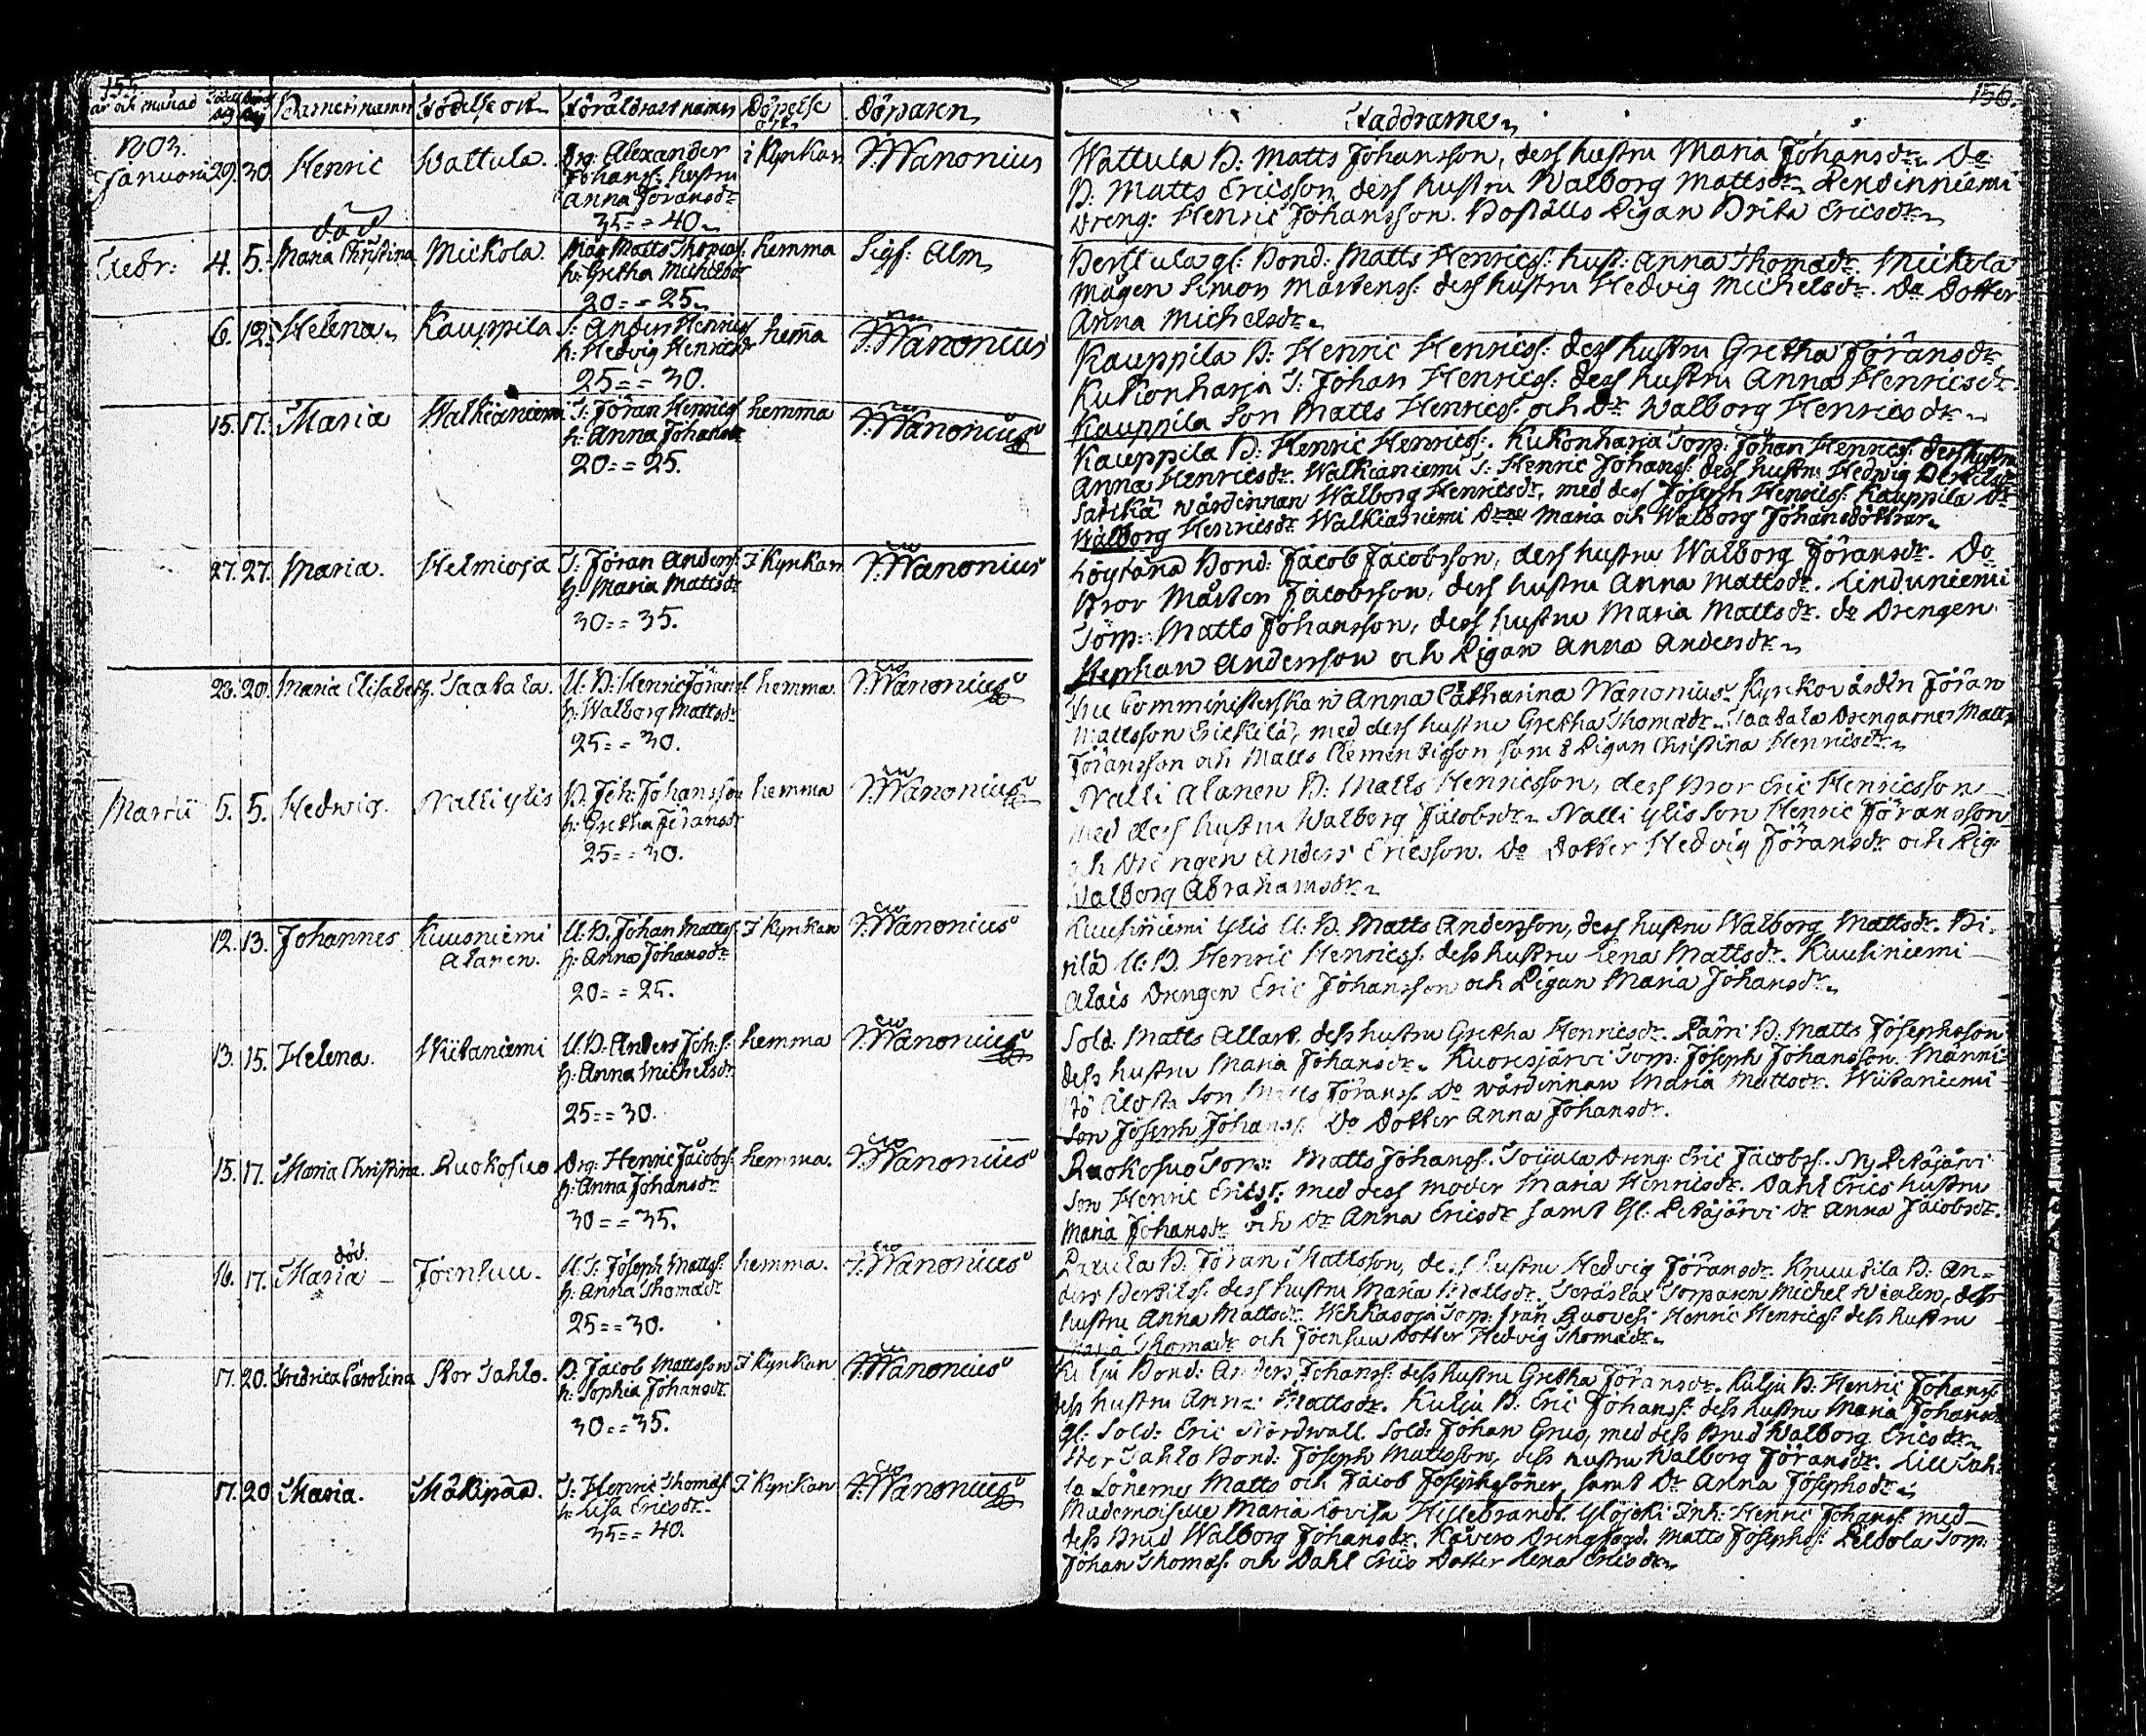 155.
år och månad Födelse dag Döpelse dag Barnets namn Födelse ort Föräldrars namn Döpelse ort Döparen
1803.
Januari 29. 30. Henric Wattula. Drg: Alexander i Kyrkan J: Wanonius
Johanss: hustru
Anna Jöransdr
35 = = 40.
död
Febr: 4. 5. Maria Christina Mickola. Måg Matts Thomæss: hemma Sigf: Alm
h: Gretha Michelsdr
20 = = 25.
6. 12. Helena Kauppila T: Anders Henricss hema J: Wanonius
h: Hedvig Henricsdr
25 = = 30.
15. 17. Maria Walkianiemi T: Jöran Henricss hemma J: Wanonius
h: Anna Johansdr
20 = = 25.
27. 27. Maria. Helmioja T: Jöran Anderss: I Kyrkan J: Wanonius
h: Maria Mattsdr
30 = = 35.
20. Maria Elisabeth. Taatala. U: B: Henric Jöranss hemma. J: Wanonius
h: Walborg Mattsdr
25 = = 30.
Martii 5. 5. Hedwig. Nalli ylis B. Joh: Johansson hemma J: Wanonius
h: Gretha Jöransdr
25 = = 30.
12. 13. Johannes Kuusniemi U: B. Johan Mattss: I Kyrkan J: Wanonius
alanen. h: Anna Johansdr
20 = = 25.
13. 15. Helena. Wiitaniemi U: B: Anders Joh:s: hemma J: Wanonius
h: Anna Michelsdr
25 = = 30.
15. 17. Maria Christina. Ruokosuo Drg: Henric Jacobss: hemma. J: Wanonius
h: Anna Johansdr
30 = = 35.
död
16. 17. Maria Joensuu. U: T: Joseph Mattss: hemma. J: Wanonius
h: Anna Thomædr
25 = = 30.
17. 20. Fredrica Carolina Stor Jahlo. B: Jacob Mattsson I Kyrkan J: Wanonius
h: Sophia Johansdr
30 = = 35.
17. 20 Maria. Mäkipää. T: Henric Thomæss I Kyrkan J: Wanonius
h: Lisa Ericsdr
35 = = 40.
156.
Faddrarne
Wattula B: Matts Johansson, dess hustru Maria Johansdr. Do
B: Matts Ericsson dess hustru Walborg Mattsdr. Lendinniemi
Dreng: Henric Johansson. Boställs Pigan Brita Ericsdr
Perttula gl: Bond: Matts Henricss: hust: Anna Thomædr. Mickola
Mågen Simon Mårtenss: dess hustru Hedvig Michelsdr. Do Dotter
Anna Michelsdr
Kauppila B: Henric Henricss: dess hustru Gretha Jöransdr
Kukonharja T: Johan Henricss: dess hustru Anna Henricsdr
Kauppila Son Matts Henricss: och Dr Walborg Henricsdr
Kauppila B: Henric Henricss: Kukonharja Torp: Johan Henricss: dess hustru
Anna Henricsdr. Walkianiemi T: Henric Johanss: dess hustru Hedwig
värdinnan Walborg Henricsdr, med dess Joseph Henricss: Kauppila Dr
Walborg Henricsdr Walkianiemi Maria och Walborg Johansdöttrar
Löytänä Bond: Jacob Jacobsson, dess hustru Walborg Jöransdr. Do
Bror Mårten Jacobsson, dess hustru Anna Mattsdr. Linduniemi
Torp: Matts Johansson, dess hustru Maria Mattsdr. do Drengen
Stephan Andersson och Pigan Anna Andersdr
Fru Comministerskan Anna Catharina Wanonius. Kyrkovärden Jöran
Mattsson Erickilä, med dess hustru Gretha Thomædr. Taatala Drengarne Matts
Jöransson och Matts Clementsson samt Pigan Christina Henricsdr
Nalli Alanen B: Matts Henricsson, dess Bror Eric Henricsson
med dess hustru Walborg Jacobsdr. Nalli ylis Son Henric Jöransson
och Drengen Anders Ericsson. Do Dotter Hedvig Jöransdr och Pig:
Walborg Abrahamsdr
Kuusiniemi Ylis U: B. Matts Andersson, dess hustru Walborg Mattsdr. Pi-
rilä U: B. Henric Henricss: dess hustru Lena Mattsdr. Kuusiniemi
Alais Drengen Eric Johansson och Pigan Maria Johansdr
Sold: Matts Allart dess hustru Gretha Henricsdr. B: Matts Josephsson
dess hustru Maria Johansdr. Kuoresjärvi Torp: Joseph Johansson. Männi-
Son Matts Jöranss. Do värdinnan Maria Mattsdr. Wiitaniemi
Son Joseph Johanss: Do Dotter Anna Johansdr.
Ruokosuo Torp: Matts Johanss: Dreng Eric Jacobss: Ny Petäjärvi
Son Henric Ericss: med dess moder Maria Henricsdr. Dahl Erics hustru
Maria Johansdr och Dr Anna Ericsdr samt Gl: Petäjärvi dr Anna Jacobsdr.
B. Jöran Mattsson, dess hustru Hedvig Jöransdr. Knuutila B: An-
ders dess hustru Maria Mattsdr. Torparen Michel dess
hustru Anna Mattsdr. Torp: från Ruovesi Henric Henricss: dess hustru
Maria Thomædr och Joensuu Dotter Hedvig Thomædr
Kulju Bond: Anders Johanss: dess hustru Gretha Jöransdr. Kulju B: Henric Johanss:
dess hustru Anna Mattsdr. Kulju B. Eric Johanss: dess hustru Maria Johansdr
gl: Sold: Eric Nordwall. Sold: Johan Grus, med dess Brud Walborg Ericsdr
Stor Jahlo Bond: Joseph Mattsson, dess hustru Walborg Jöransdr. Lill Jah-
lo Sönerne Matts och Jacob Josephssöner, samt Dr Anna Josephsdr
Mademoiselle Maria Lovisa Hillebrandt. Ylöjoki Inh: Henric Johanss: med
dess Brud Walborg Johansdr. Matts Josephss: Torp:
Johan Thomæss: och Dahl Erics Dotter Lena Ericsdr